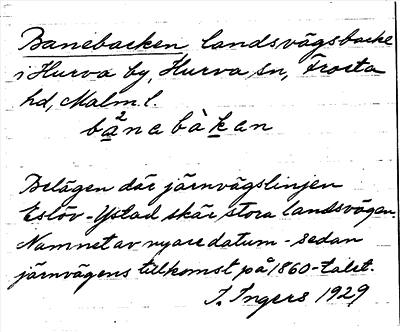 Banebacken landsvägsbacke
i Hurva by, Hurva sn, Frosta
hd, Malm. l.
bå²nabàkan
Belägen där järnvägslinjen
Eslöv - Ystad skär stora landsvägen.
Namnet av nyare datum - sedan
järnvägens tillkomst på 1860-talet.
I. Ingers 1929